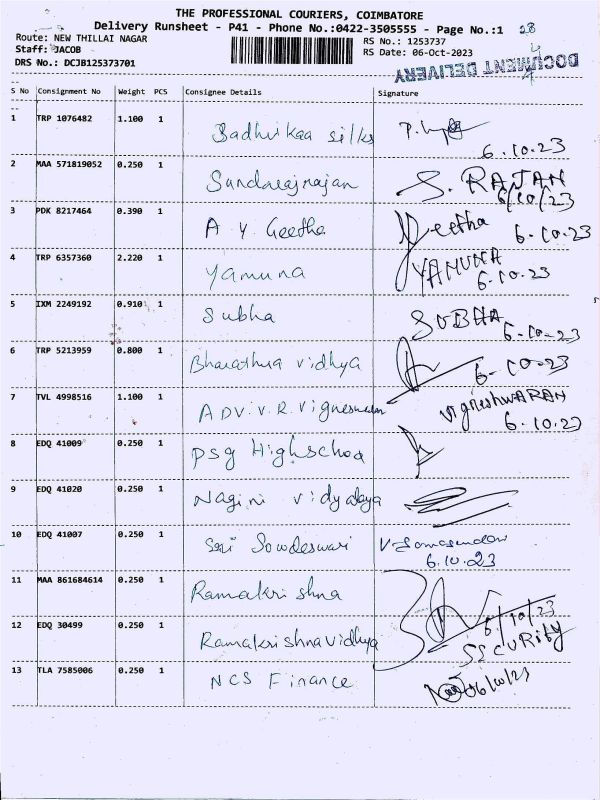 THE PROFESSIONAL COURIERS, COIMBATORE
Delivery Runsheet - P41 - Phone No.:0422-3505555 - Page No.:1 28
Route: NEW THILLAI NAGAR RS No.: 1253737
Staff: JACOB RS Date: 06-Oct-2023
DRS No.: DCJB125373701 DOCUMENT DELIVERY
S No Consignment No Weight PCS Consignee Details Signature
1 TRP 1076482 1.100 1 Sadhvikaa silks
6.10.23
2 MAA 571819052 0.250 1 Sundararajan S. RAJAN
6/10/23
3 PDK 8217464 0.390 1 A Y Geetha Geetha 6.10.23
4 TRP 6357360 2.220 1 Yamuna YAMUNA
6.10.23
5 IXM 2249192 0.910 1 Subha SUBHA 6.10.23
6 TRP 5213959 0.800 1 Bharathiya vidhya 6.10.23
7 TVL 4998516 1.100 1 ADV.V.R.Vigneswaran VigneshwARAN
6.10.23
8 EDQ 41009 0.250 1 PSG Highschool
9 EDQ 41020 0.250 1 Nagini vidyalaya
10 EDQ 41007 0.250 1 Sri Sowdeswari V-Somasundar
6.10.23
11 MAA 861684614 0.250 1 Ramakrishna
12 EDQ 30499 0.250 1 Ramakrishna vidhya 6/10/23
SSCURITY
13 TLA 7585006 0.250 1 NCS Finance 06/10/23